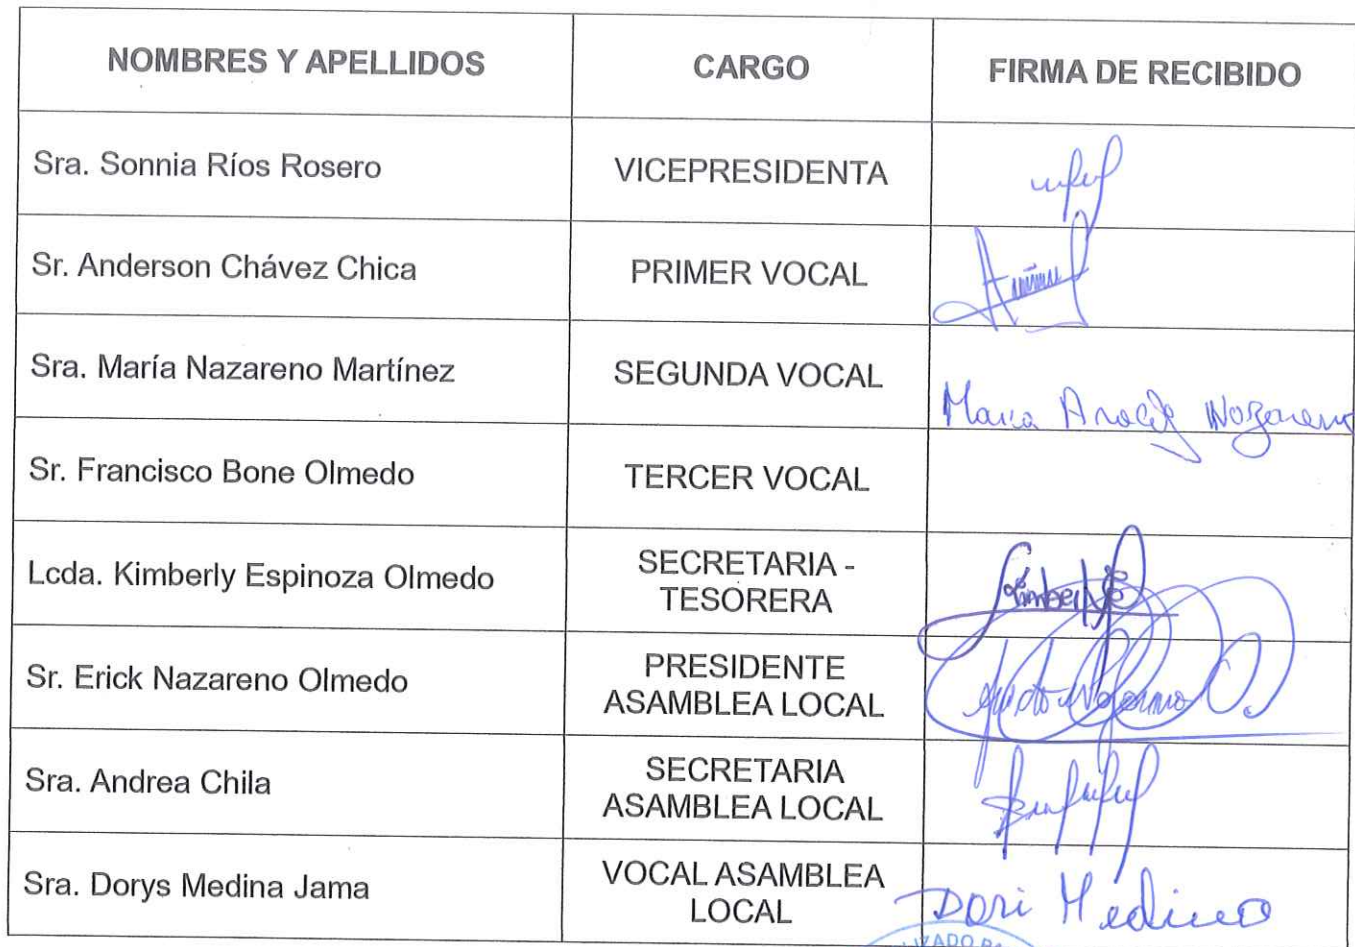 NOMBRES Y APELLIDOS CARGO FIRMA DE RECIBIDO
Sra. Sonnia Ríos Rosero VICEPRESIDENTA
Sr. Anderson Chávez Chica PRIMER VOCAL
Sra. María Nazareno Martínez SEGUNDA VOCAL Maria Nazareno
Sr. Francisco Bone Olmedo TERCER VOCAL
Lcda. Kimberly Espinoza Olmedo SECRETARIA -
TESORERA
Sr. Erick Nazareno Olmedo PRESIDENTE
ASAMBLEA LOCAL
Sra. Andrea Chila SECRETARIA
ASAMBLEA LOCAL
Sra. Dorys Medina Jama VOCAL ASAMBLEA
LOCAL Dori Medina